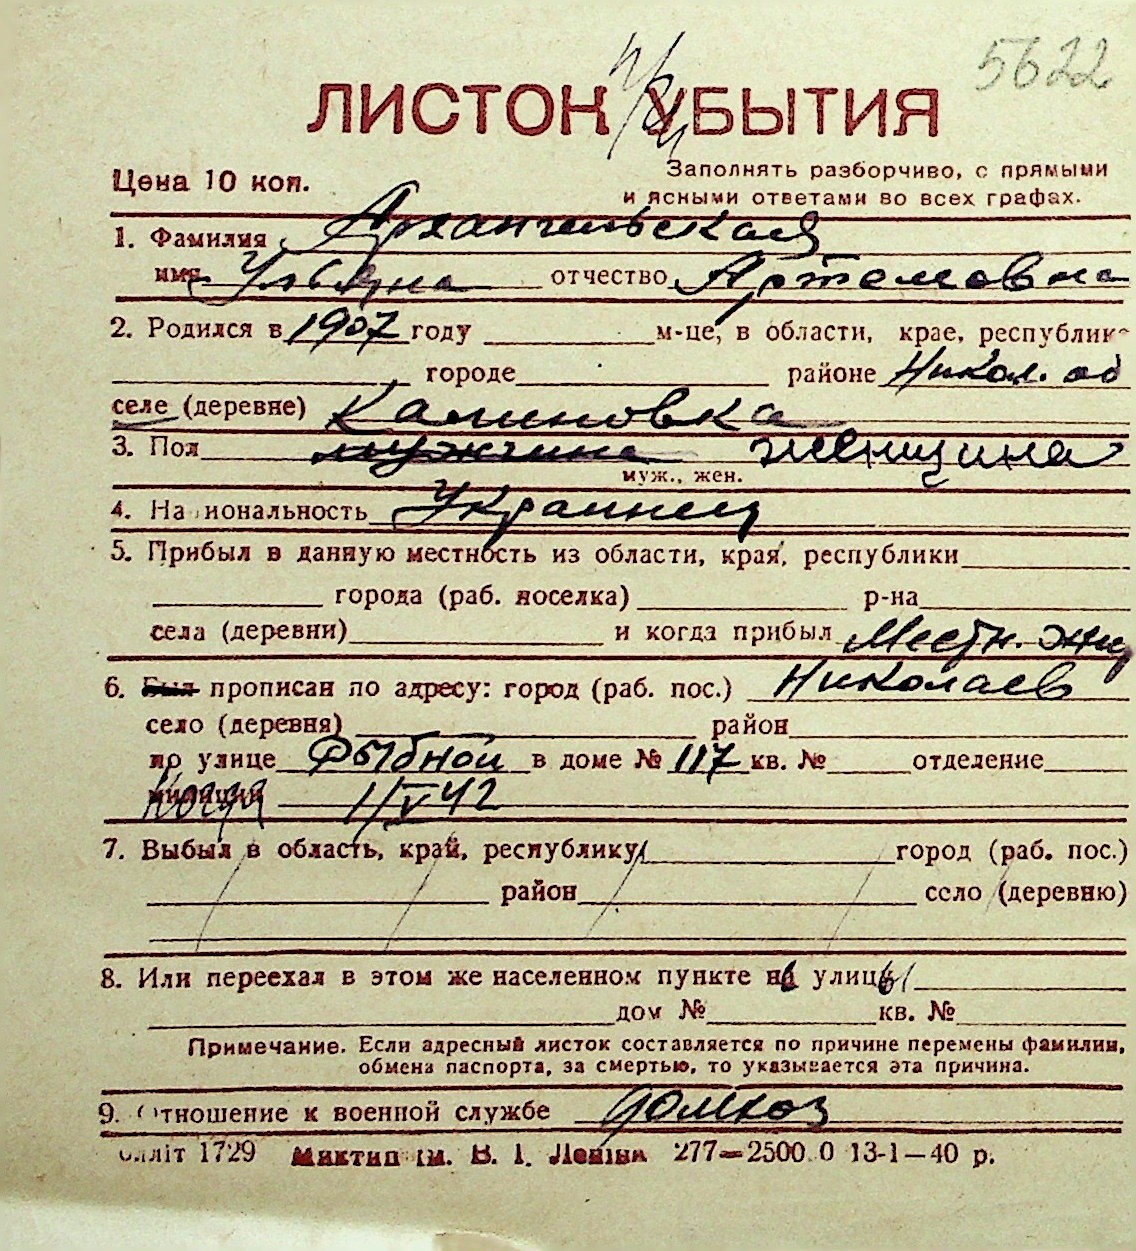 5622
ЛИСТОК УБЫТИЯ
Цена 10 коп.
Заполнять разборчиво, с прямыми
и ясными ответами во всех графах.
1. Фамилия Архангельская
имя Ульяна отчество Артемовна
2. Родился в 1907 году м-це, в области, крае, республик
городе районе Никол. об
селе (деревне) Калиновка
3. Пол мужчина женщина
муж., жен.
4. Национальность Украинец
5. Прибыл в данную местность из области, края, республики
города (раб. поселка) р-на
села (деревни) и когда прибыл Местн. жит
6. Был прописан по адресу: город (раб. пос.) Николаев
село (деревня) район
по улице Рыбной в доме № 117 кв. № отделение
милиции когда 1/V 42
7. Выбыл в область, край, республику город (раб. пос.)
район село (деревню)
8. Или переехал в этом же населенном пункте на улицу
дом № кв. №
Примечание. Если адресный листок составляется по причине перемены фамилии,
обмена паспорта, за смертью, то указывается эта причина.
9. Отношение к военной службе домхоз
лліт 1729 Миктип ім. В. І. Леніна 277—2500 0 13-1—40 р.